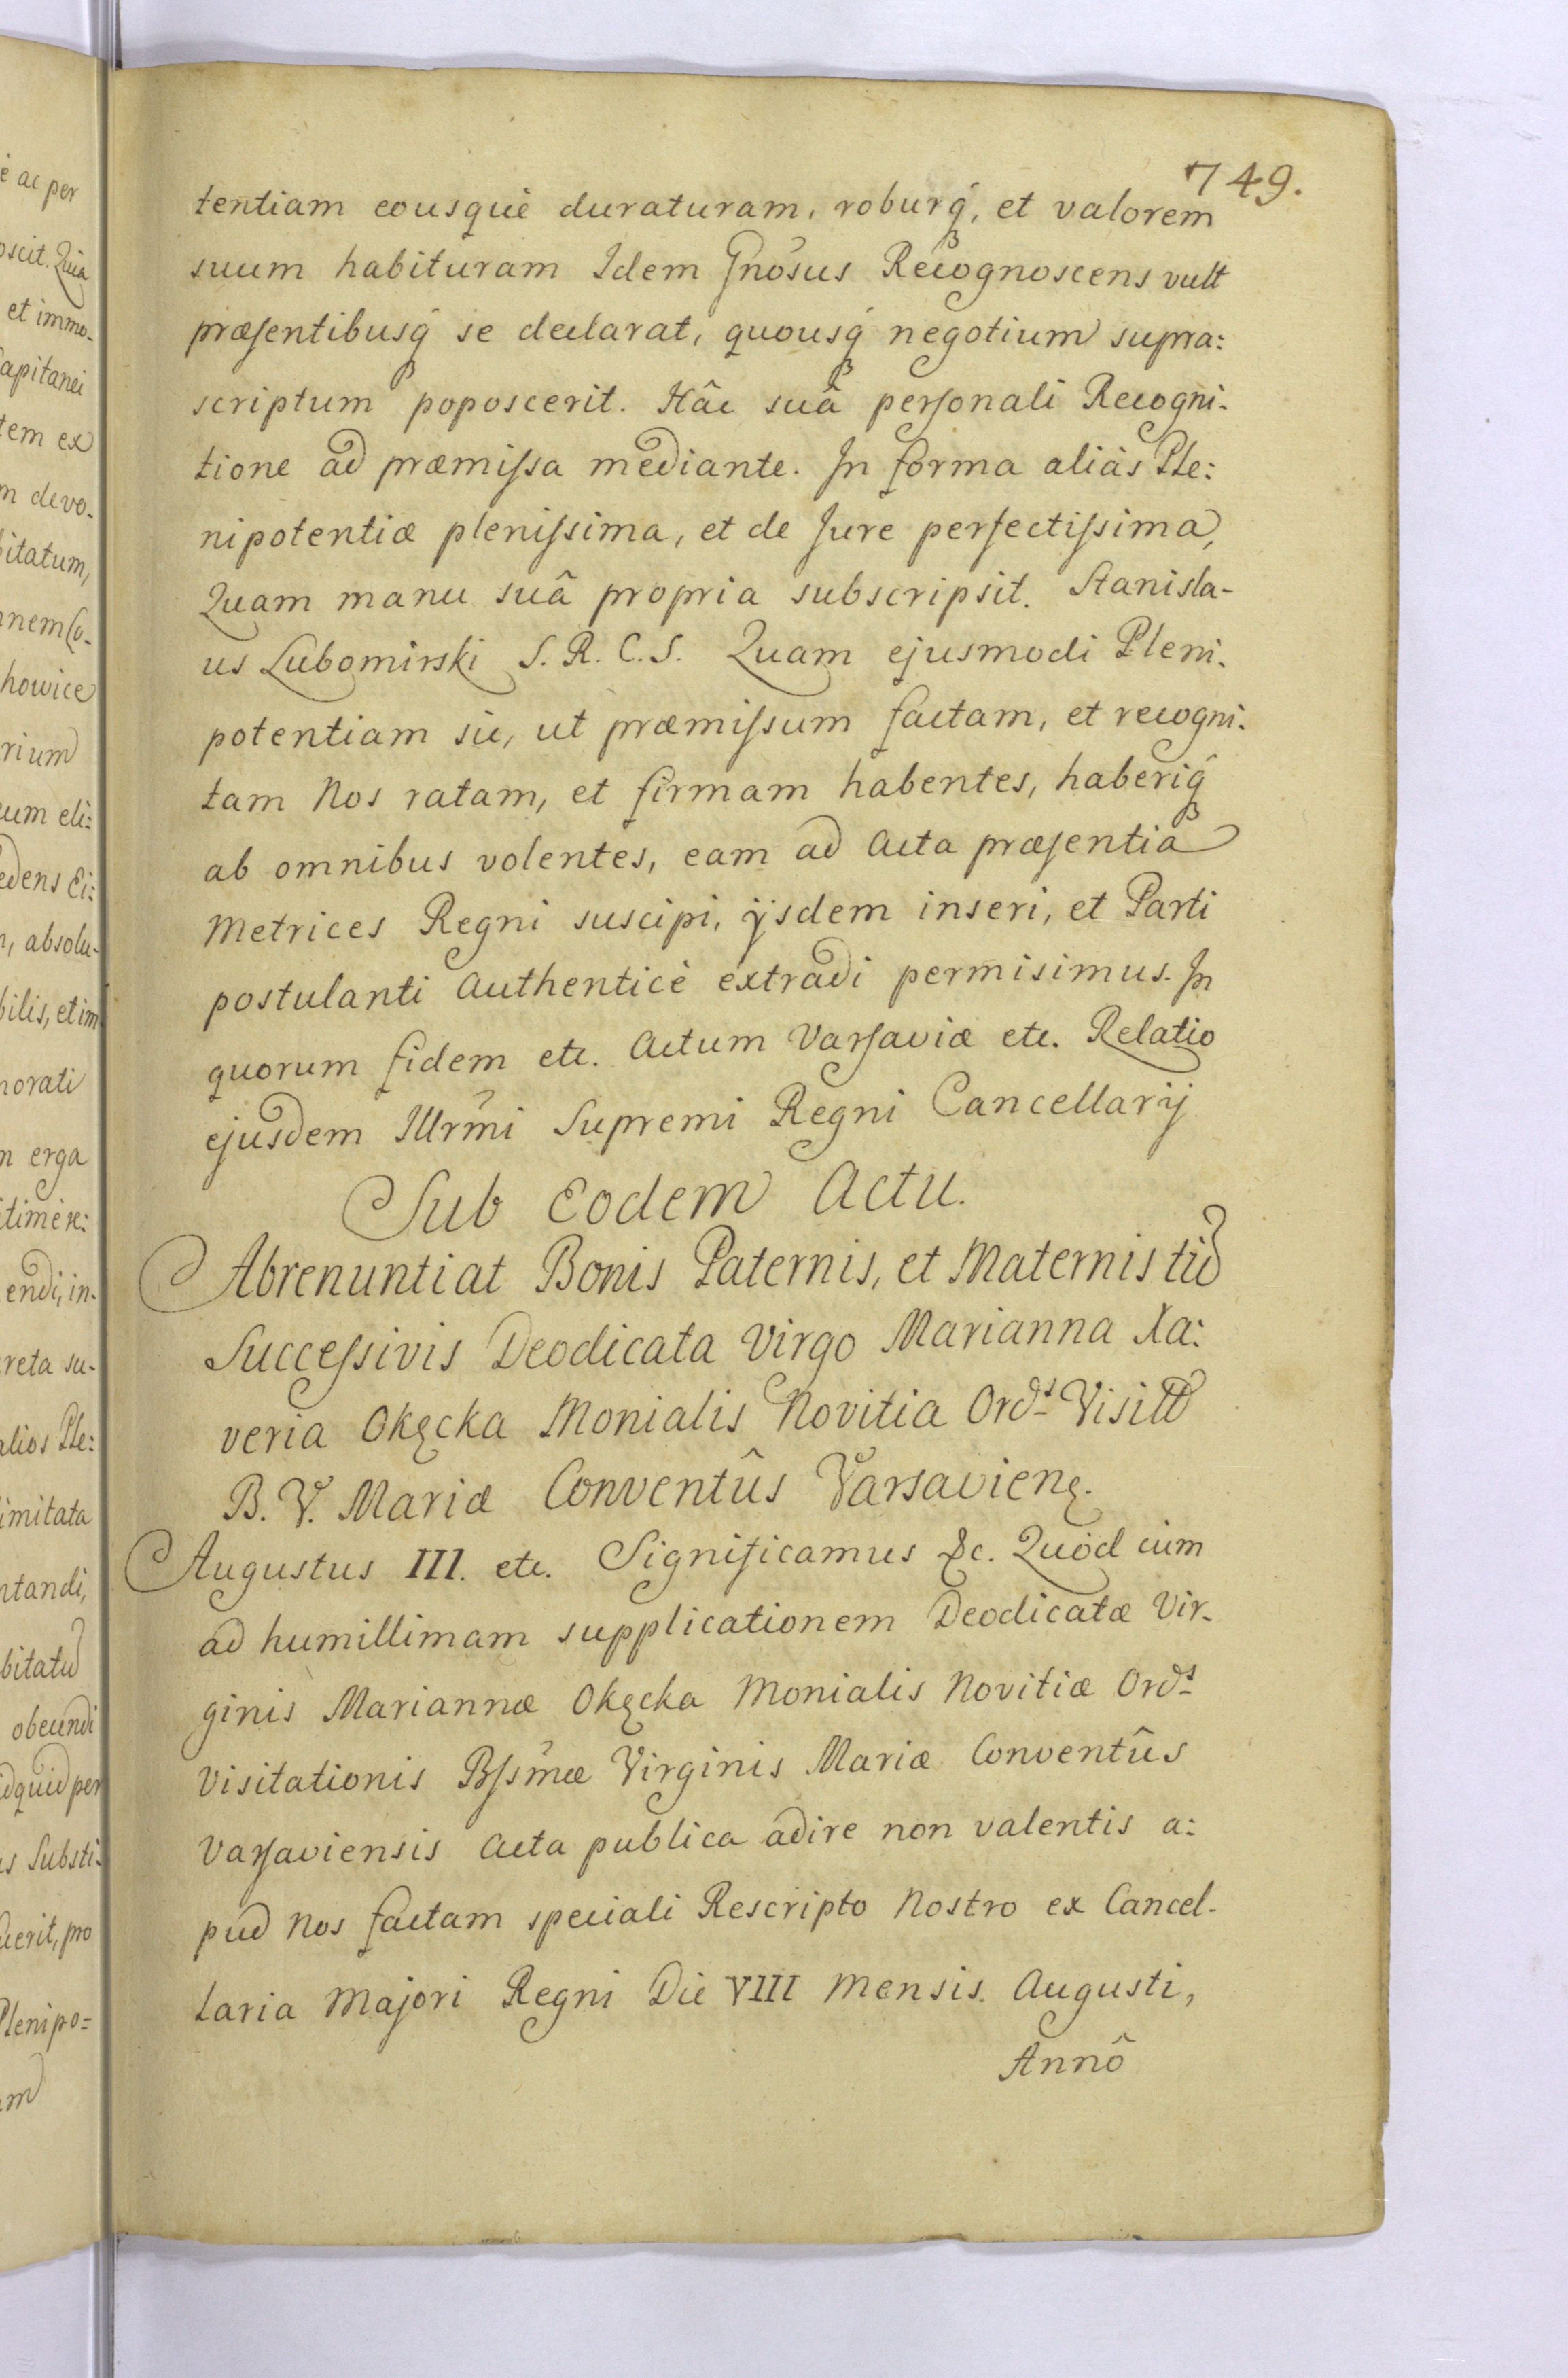 749.
tentiam eousquè duraturam, roburq́, et valorem
suum habituram Idem Gnosus Recognoscens vult
præsentibusq́ se declarat, quousq́ negotium supra:
scriptum poposcerit. Hâc suâ personali Recogni-
tione ad præmissa mediante. In forma aliàs Ple:
nipotentiæ plenissima, et de Jure perfectissima,
Quam manu suâ propria subscripsit. Stanisla-
us Lubomirski S. R. C. S. Quam ejusmodi Pleni-
potentiam sic, ut præmissum factam, et recogni-
tam Nos ratam, et firmam habentes, haberiq́
ab omnibus volentes, eam ad Acta præsentia
Metrices Regni suscipi, ijsdem inseri, et Parti
postulanti Authenticè extradi permisimus. In
quorum fidem etc. Actum Varsaviæ etc. Relatio
ejusdem Illrmi Supremi Regni Cancellarij
Sub Eodem Actu.
Abrenuntiat Bonis Paternis, et Maternis
Successivis Deodicata Virgo Marianna Xa:
veria Okęcka Monialis Novitia Ord.s
B. V. Mariæ Conventûs Varsavienę.
Augustus III. etc. Significamus &c. Quòd cùm
ad humillimam supplicationem Deodicatæ Vir-
ginis Mariannæ Okęcka Monialis Novitiæ Ord.s
Visitationis Bssmæ Virginis Mariæ Conventûs
Varsaviensis Acta publica adire non valentis a:
pud Nos factam speciali Rescripto Nostro ex Cancel-
laria Majori Regni Die VIII Mensis Augusti,
Annô
è ac per
oscit. Quia
et immo-
Capitanei
tem ex
m devo-
bitatum,
nnem Co-
howice
rium
um eli:
edens Ei:
n, absolu-
bilis, et im
norati
m erga
itimè re:
endi, in-
reta su-
alios Ple:
imitata
ntandi,
bitatu
obeundi
idquid per
us Substi-
uerit, pro
Plenipo=
am